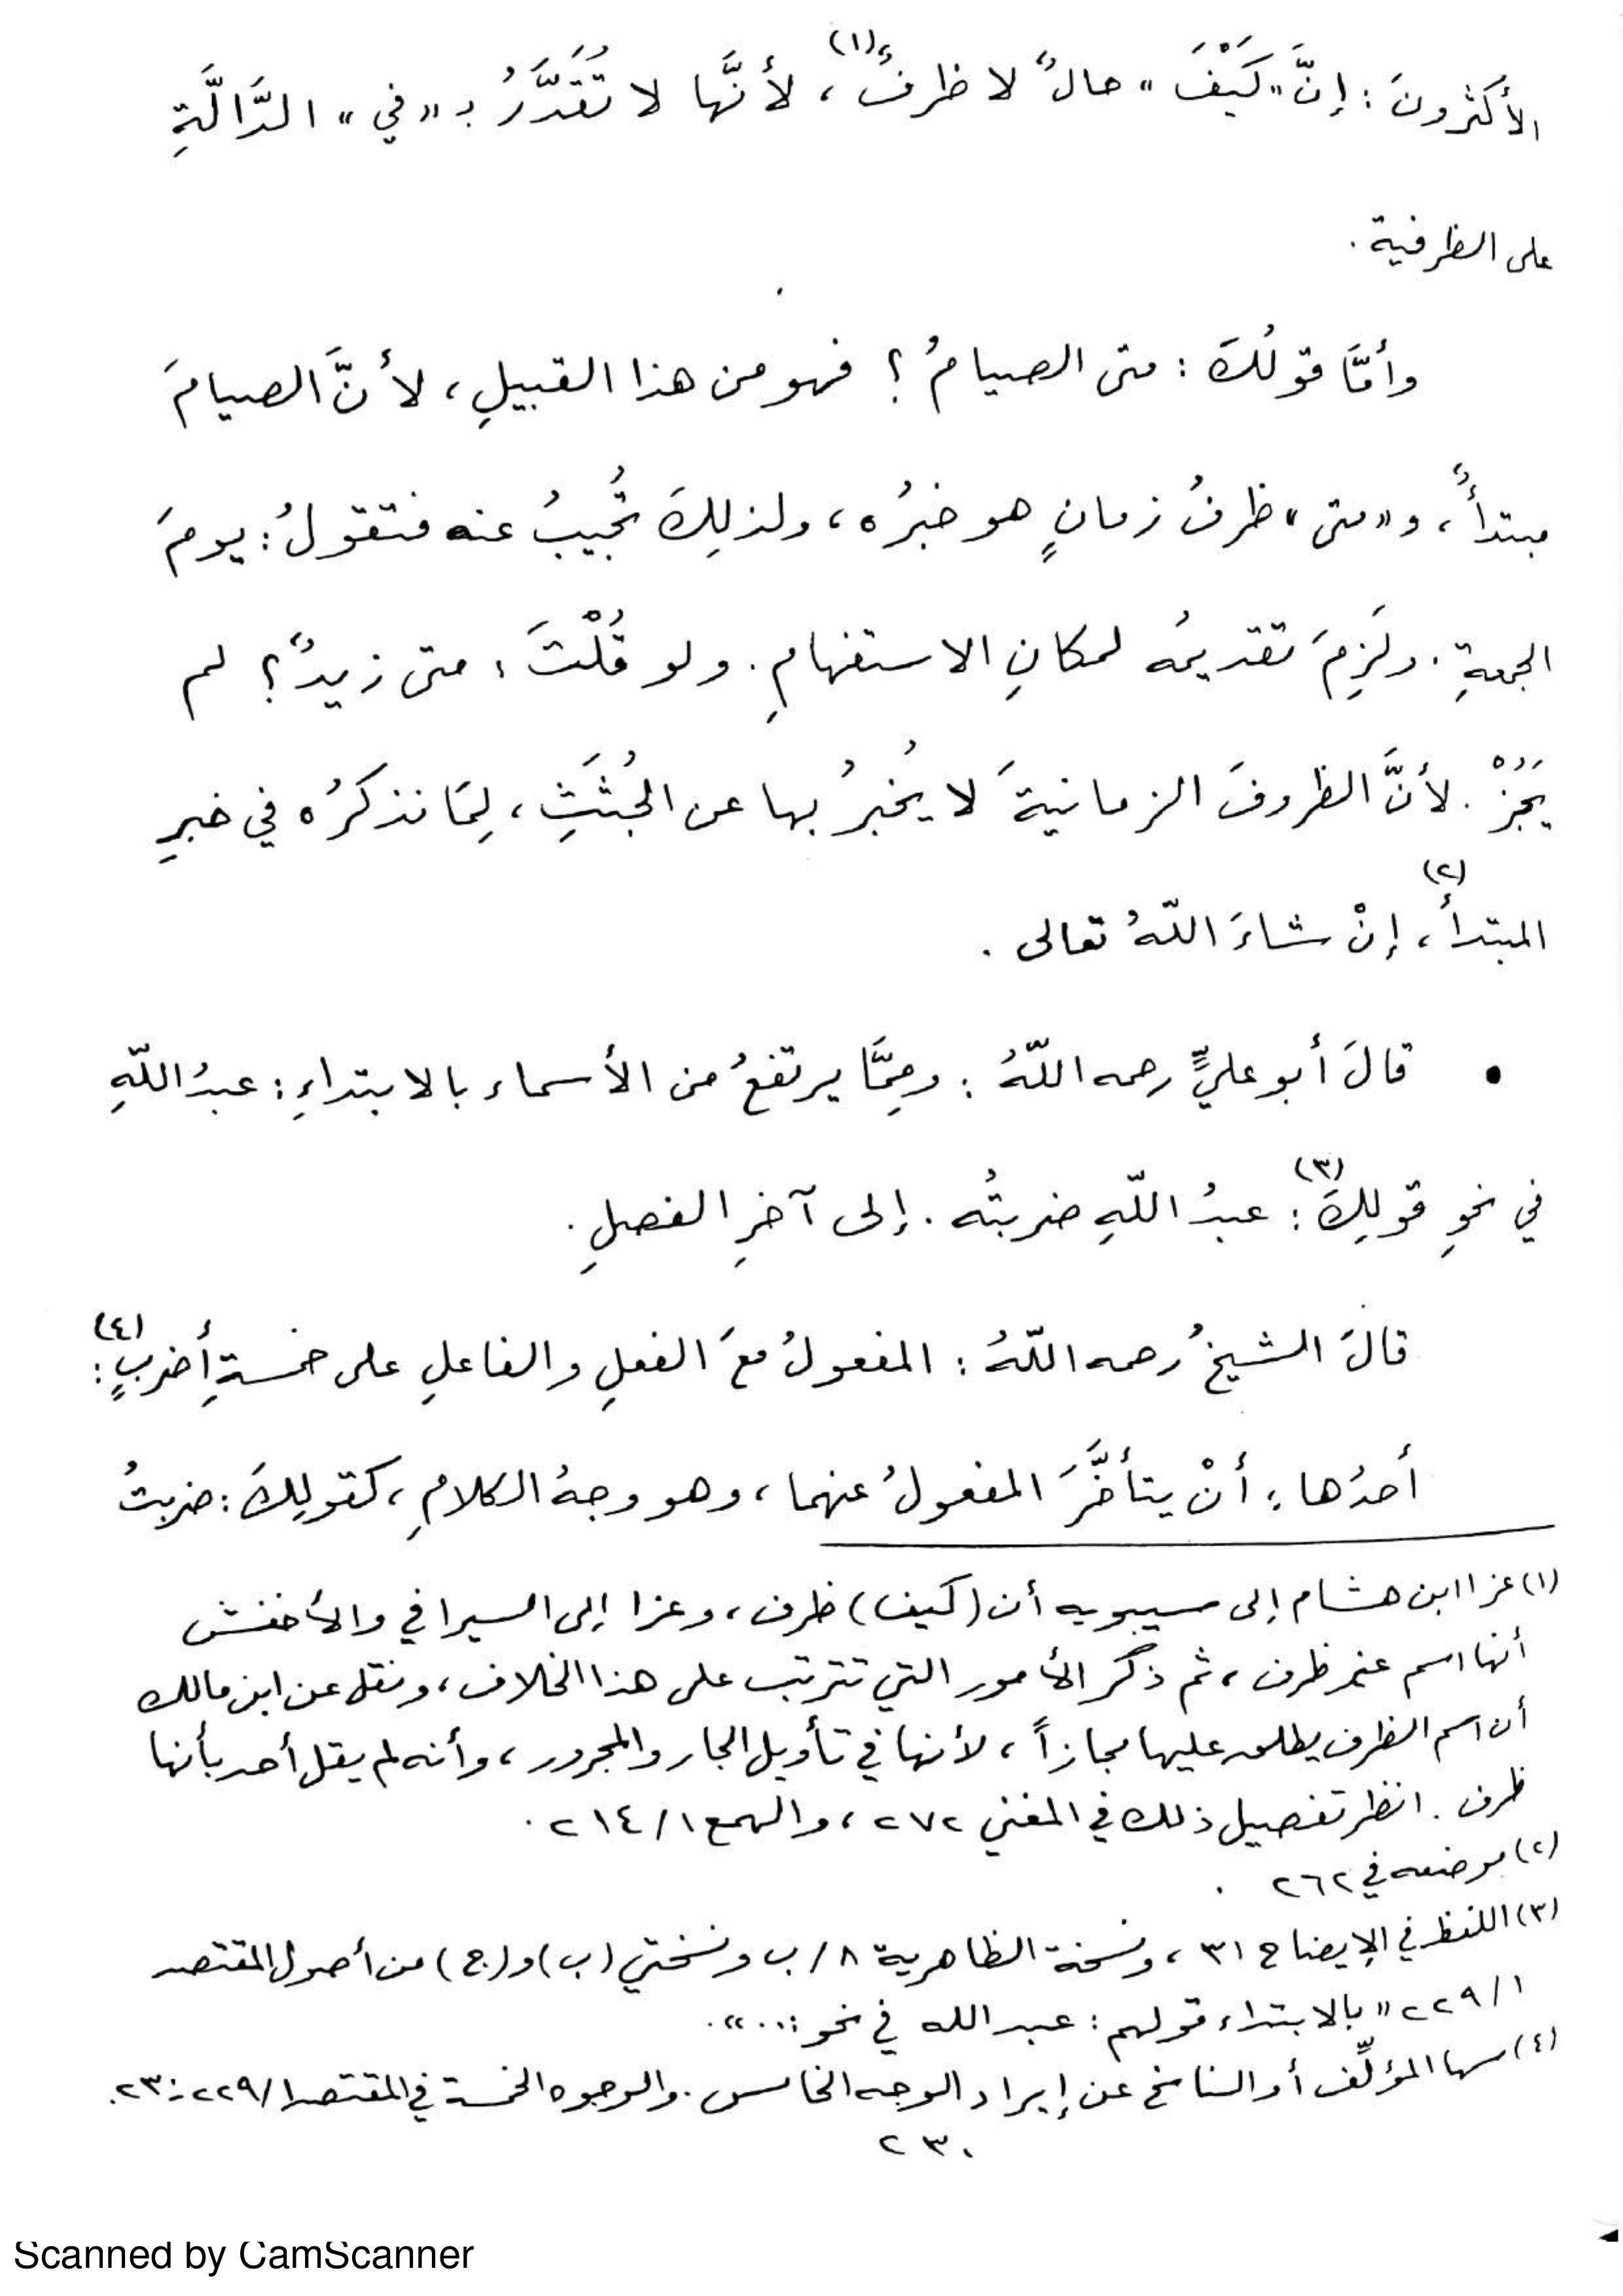 الأكثرونَ : إنَّ «كَيْفَ» حالٌ لا ظرفٌ(١)، لأنَّها لا تُقَدَّرُ بـ «في» الدَّالَّةِ
على الظرفية .
وأمَّا قولُكَ : متى الصيامُ ؟ فهو من هذا القبيلِ ، لأنَّ الصيامَ
مبتدأٌ ، و«متى» ظرفُ زمانٍ هو خبرُه ، ولذلِكَ تُجيبُ عنه فتقولُ : يومَ
الجمعةِ . ولَزِمَ تقديمُه لمكانِ الاستفهامِ . ولو قُلْتَ : متى زيدٌ ؟ لم
يَجُزْ . لأنَّ الظروفَ الزمانيةَ لا يُخبرُ بها عن الجُثَثِ ، لِمَا نذكرُه في خبرِ
المبتدأِ(٢)، إنْ شاءَ اللّهُ تعالى .
• قالَ أبو عليٍّ رحمه اللّهُ : ومِمَّا يرتفعُ من الأسماء بالابتداءِ : عبدُ اللّهِ
في نحوِ قولِكَ(٣) : عبدُ اللّهِ ضربتُه . إلى آخرِ الفصلِ .
قالَ الشيخُ رحمه اللّهُ : المفعولُ معَ الفعلِ والفاعلِ على خمسةِ أضربٍ(٤) :
أحدُها : أنْ يتأخَّرَ المفعولُ عنهما ، وهو وجهُ الكلامِ ، كقولِكَ : ضربتُ
(١) عزا ابن هشام إلى سيبويه أن (كيف) ظرف ، وعزا إلى السيرافي والأخفش
أنها اسم غير ظرف ، ثم ذكر الأمور التي تترتب على هذا الخلاف ، ونقل عن ابن مالك
أن اسم الظرف يطلق عليها مجازاً ، لأنها في تأويل الجار والمجرور ، وأنه لم يقل أحد بأنها
ظرف . انظر تفصيل ذلك في المغني ٢٧٢ ، والهمع ١/٢١٤ .
(٢) موضعه في ٢٦٢ .
(٣) اللفظ في الإيضاح ٣١ ، ونسخة الظاهرية ٨/ب ونسختي (ب) و(ج) من أصول المقتصد
١/٢٢٩ «بالابتداء قولهم : عبد الله في نحو : ...» .
(٤) سها المؤلِّف أو الناسخ عن إيراد الوجه الخامس . والوجوه الخمسة في المقتصد ١/٢٢٩ - ٢٣٠ .
٢٣٠
Scanned by CamScanner